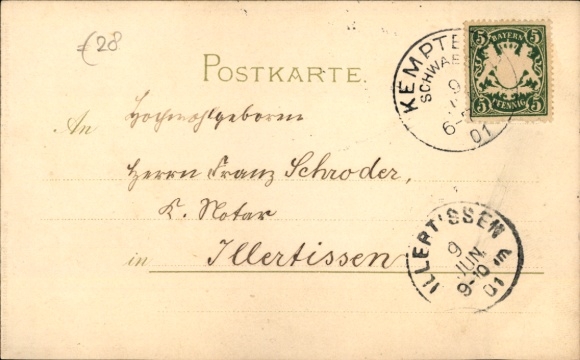 €28
POSTKARTE.
KEMPTE
SCHWAB
9
6-
01
5 BAYERN 5
5 PFENNIG 5
An Hochwohlgeboren
Herrn Franz Schroder,
K. Notar
in Illertissen
ILLERTISSEN
9
JUN.
9-10
01